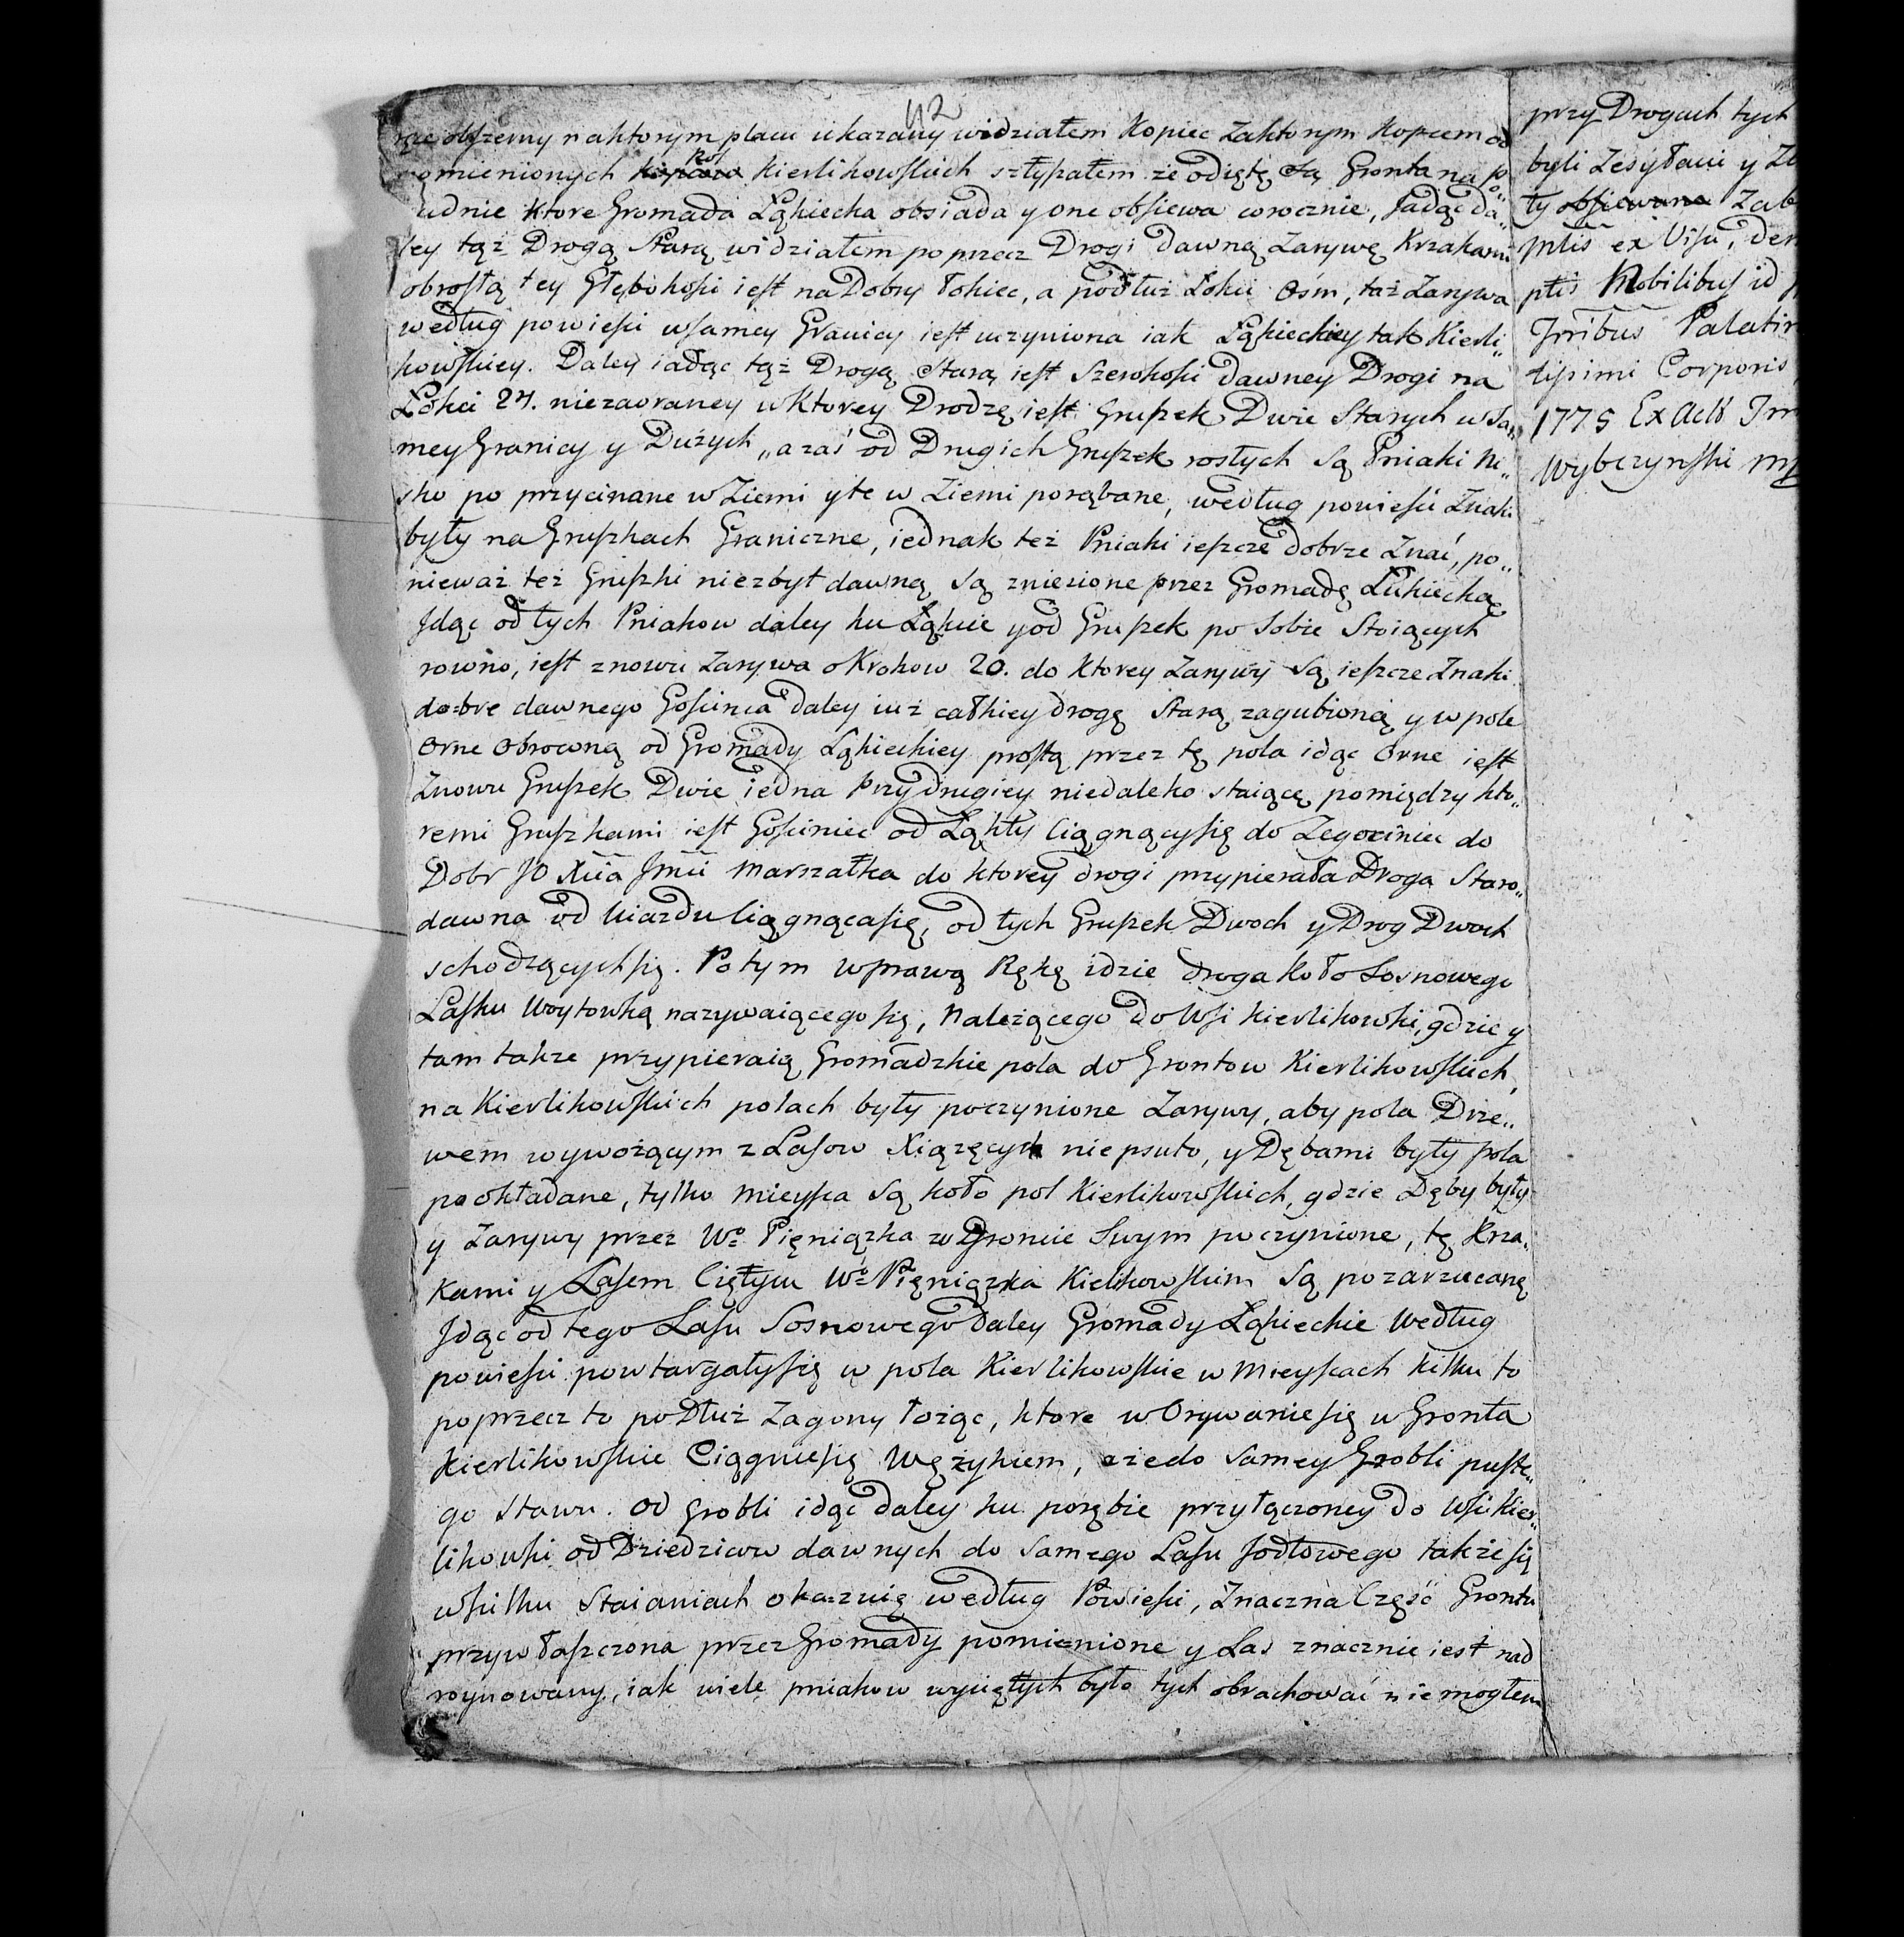 42
rąc obszerny na ktorym placu ukazany widziałem Kopiec za ktorym Kopcem od
pomienionych Kopcow pol Kierlikowskich szłyszałem że odięte są Gronta na po„
łudnie ktore Gromada Łąkiecka obsiada y one obsiewa corocznie, Jadąc da„
ley tąż Drogą Starą widziałem poprzecz Drogi dawną Zarywę Krzakami
obrosłą tey Głębokosci iest na Dobry łokiec, a podłuż Łokci Osm, taż Zarywa
według powiesci w samey Granicy iest uczyniona iak Łąkieckiey tak Kierli„
kowskiey. Daley iadąc tąż Drogą Starą iest Szerokosci dawney Drogi na
Łokci 27. niezaoraney w Ktorey Drodzę iest Gruszek Dwie Starych w Sa„
mey Granicy y Dużych „a zaś od Drugich Gruszek rosłych są Pniaki Ni„
sko po przycinane w Ziemi y te w Ziemi porąbane, według powiesci Znaki
były na Gruszkach Graniczne, iednak też Pniaki ieszcze dobrze Znać, po„
nieważ też Gruszki niezbyt dawną są zniesione przez Gromadę Łukiecką
Jdąc od tych Pniakow daley ku Łąkcie y od Gruszek po Sobie Stoiących
rowno, iest znowu Zarywa o Krokow 20. do Ktorey Zarywy są ieszcze Znaki
do=bre dawnego Goscinca daley iuż całkiey drogę Starą zagubioną y w pole
Orne Obrocną od Gromady Łąkieckiey prostą przez tę pola idąc Orne iest
Znowu Gruszek Dwie iedna Przy drugiey niedaleko staiącę, pomiędzy kto„
remi Gruszkami iest Gosciniec od Łąkty Ciągnący się do Zegocinie do
Dobr JO Xcia Jmci Marszałka do ktorey drogi przypierała Droga Staro„
dawna od Uiazdu Ciągnąca się, od tych Gruszek Dwoch y Drog Dwoch
schodzących się. Potym w prawą Rękę idzie droga koło Sosnowego
Lasku Woytowką nazywaiącego się, Należącego do Wsi Kierlikowki, gdzie y
tam także przypieraią Gromadzkie pola do Grontow Kierlikowskich,
na Kierlikowskich polach były poczynione Zarywy, aby pola Drze„
wem wywożącym z Lasow Xiązęcych nie psuto, y Dębami były pola
pookładane, tylko mieysca są koło pol Kierlikowskich, gdzie Dęby były
y Zarywy przez Wo Pieniązka w Groncie Swym poczynione, tę Krza„
kami y Lasem Ciętym Wo Pieniązka Kielikowskim są pozarzucanę
Jdąc od tego Lasu Sosnowego daley Gromady Łąkieckie Według
powiesci powtargały się w pola Kierlikowskie w Mieyscach kilku to
poprzecz to podłuż Zagony łożąc, ktore w Orywanie się w Gronta
Kierlikowskie Ciągnie się Wężykiem, aże do Samey Grobli puste„
go Stawu. Od Grobli idąc daley ku porąbie przyłączoney do Wsi Kier„
likowki od Dziedzicow dawnych do Samego Lasu Jodłowego także się
w kilku Staianiach okazuię według Powiesci, Znaczna Część Grontu
przywłaszczona przez Gromady pomienione y Las znacznie iest nad
roynowany, iak wiele pniakow wyciętych było tych obrachować nie mogłem
przy Drogach tych
byli Zesyłani y
ty obsiewana Zab
ptis ex Visu, den
ptis Nobilibus id
Jnribus Palatin
tissimi Corporis
1775 Ex Actis
Wybczynski mp